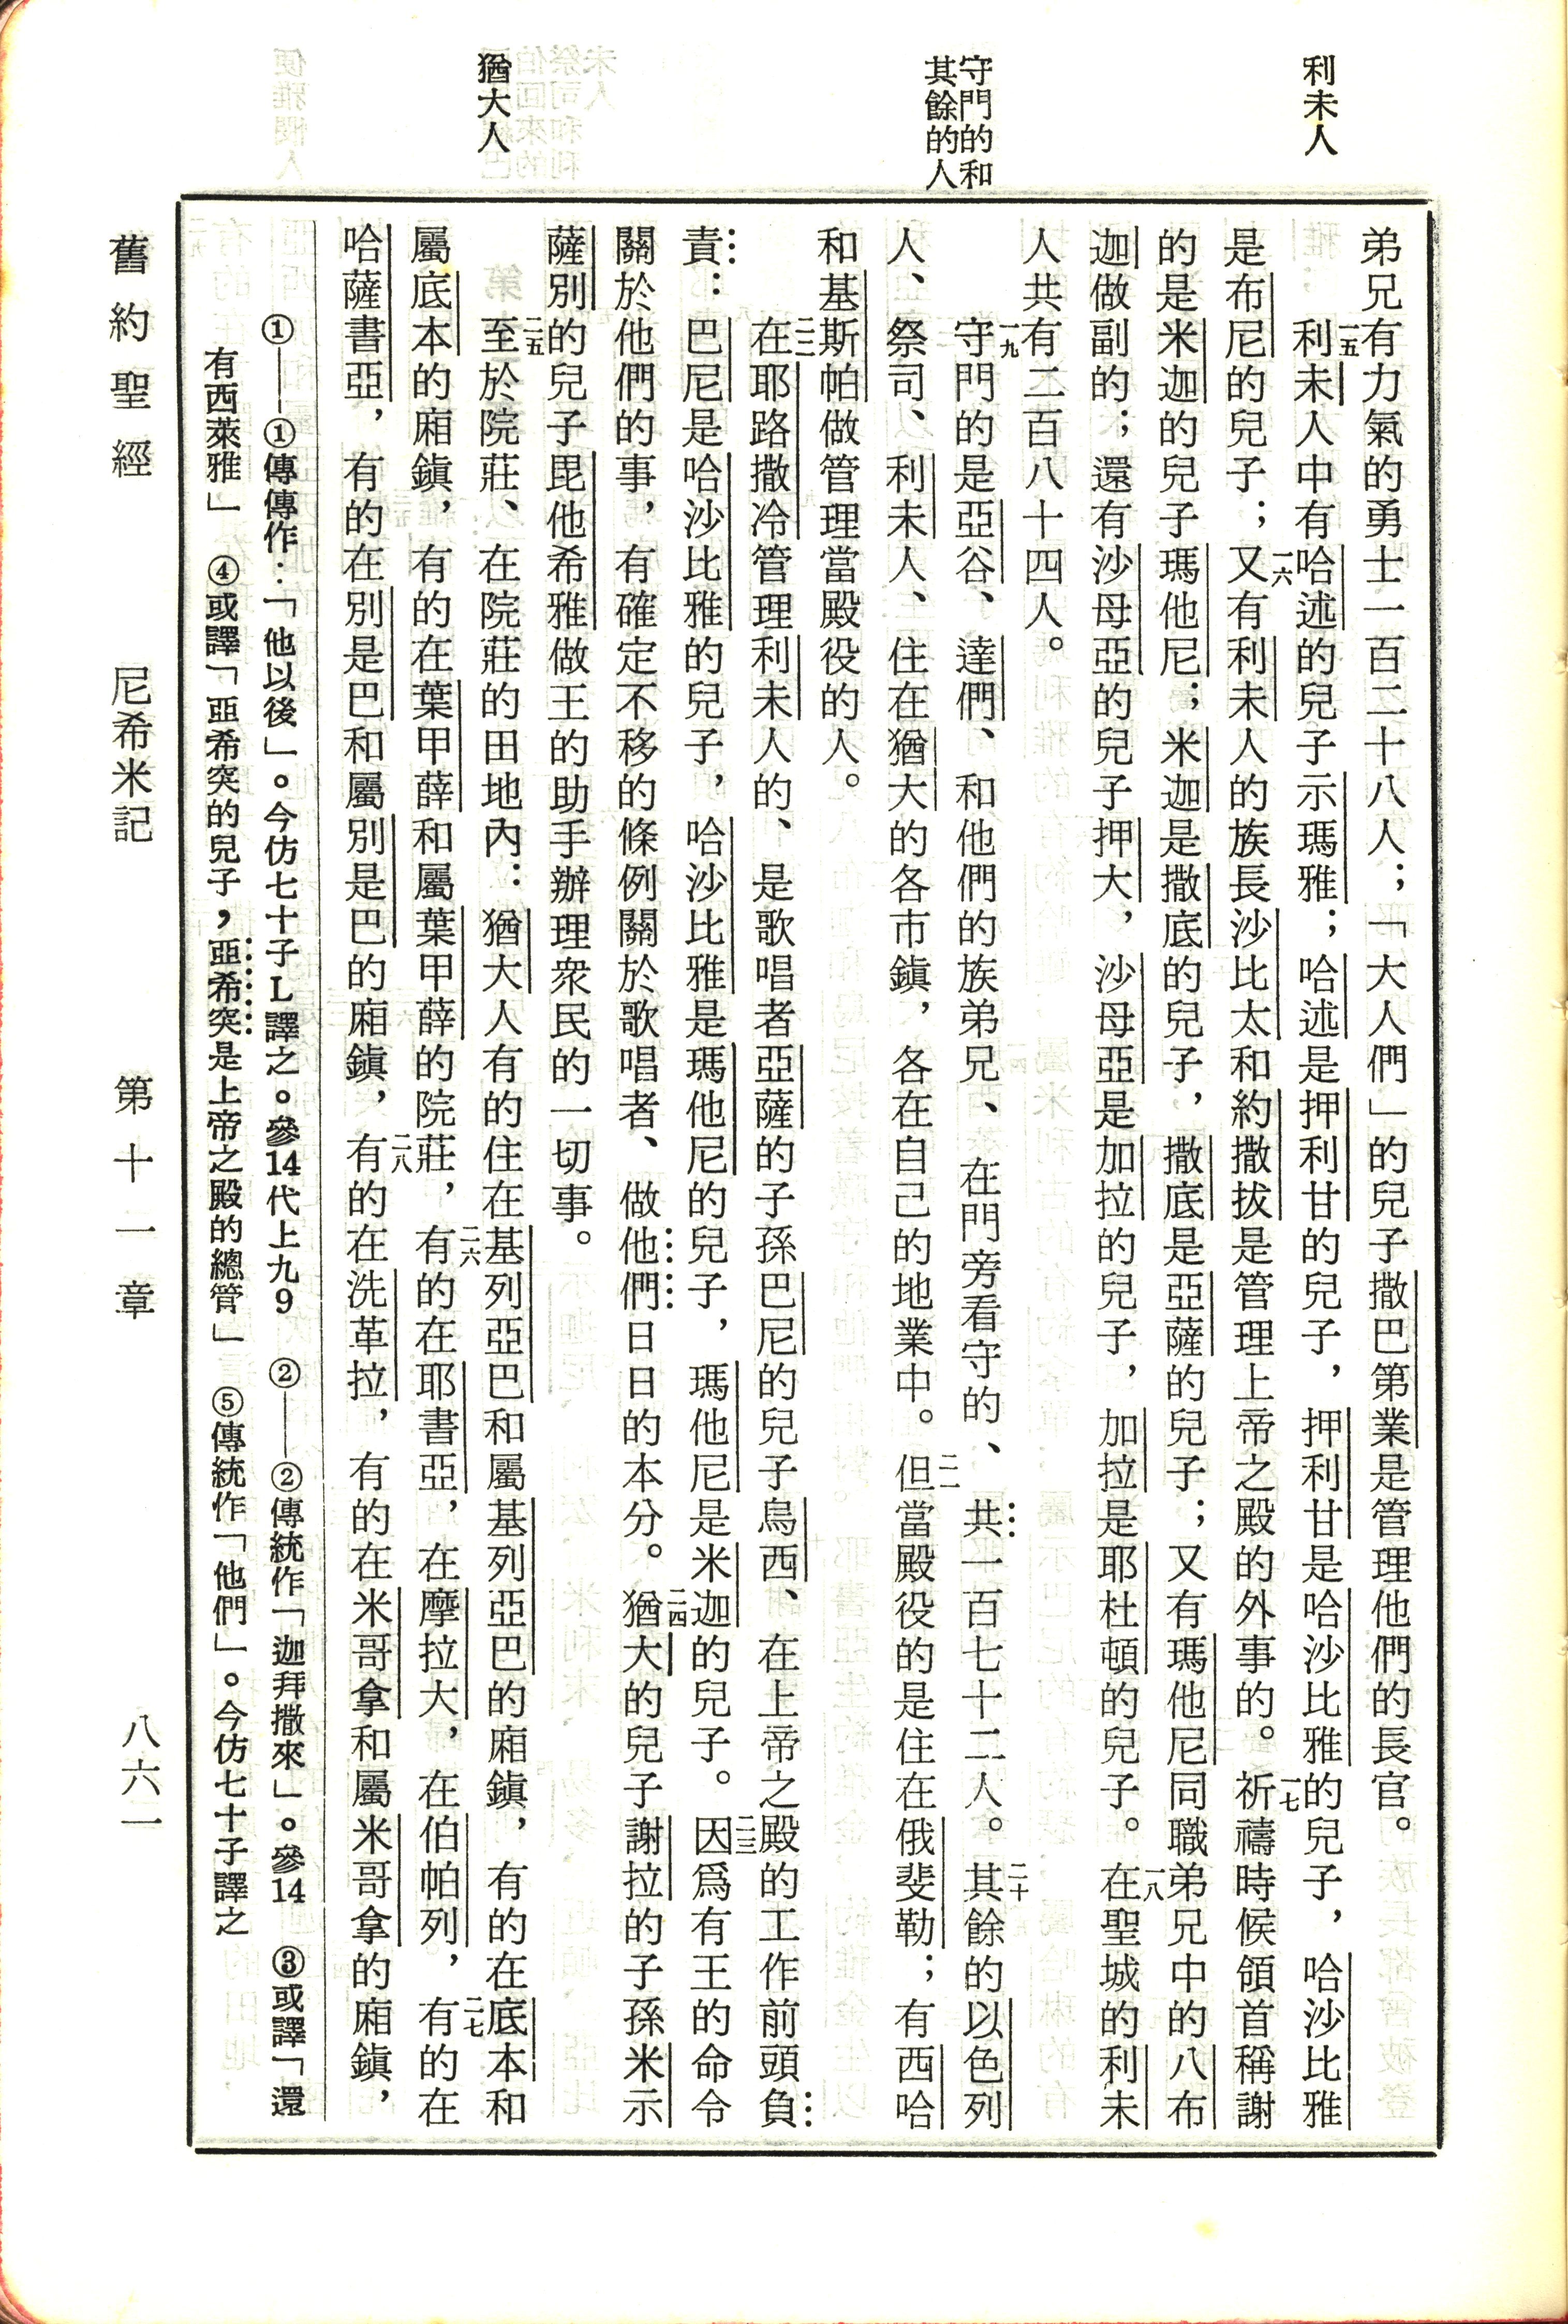 利未人
守門的和
其餘的人
猶大人
弟兄有力氣的勇士一百二十八人；「大人們」的兒子撒巴第業是管理他們的長官。
一五利未人中有哈述的兒子示瑪雅；哈述是押利甘的兒子，押利甘是哈沙比雅的兒子，哈沙比雅
是布尼的兒子；一六又有利未人的族長沙比太和約撒拔是管理上帝之殿的外事的。一七祈禱時候領首稱謝
的是米迦的兒子瑪他尼；米迦是撒底的兒子，撒底是亞薩的兒子；又有瑪他尼同職弟兄中的八布
迦做副的；還有沙母亞的兒子押大，沙母亞是加拉的兒子，加拉是耶杜頓的兒子。一八在聖城的利未
人共有二百八十四人。
一九守門的是亞谷、達們、和他們的族弟兄、在門旁看守的、共一百七十二人。二十其餘的以色列
人、祭司、利未人、住在猶大的各市鎮，各在自己的地業中。二一但當殿役的是住在俄斐勒；有西哈
和基斯帕做管理當殿役的人。
二二在耶路撒冷管理利未人的、是歌唱者亞薩的子孫巴尼的兒子烏西、在上帝之殿的工作前頭負
責：巴尼是哈沙比雅的兒子，哈沙比雅是瑪他尼的兒子，瑪他尼是米迦的兒子。二三因爲有王的命令
關於他們的事，有確定不移的條例關於歌唱者、做他們日日的本分。二四猶大的兒子謝拉的子孫米示
薩別的兒子毘他希雅做王的助手辦理衆民的一切事。
二五至於院莊、在院莊的田地內：猶大人有的住在基列亞巴和屬基列亞巴的廂鎮，有的在底本和
屬底本的廂鎮，有的在葉甲薛和屬葉甲薛的院莊，二六有的在耶書亞，在摩拉大，在伯帕列，二七有的在
哈薩書亞，有的在別是巴和屬別是巴的廂鎮，二八有的在洗革拉，有的在米哥拿和屬米哥拿的廂鎮，
①——①傳傳作：「他以後」。今仿七十子L譯之。參14代上九9　②——②傳統作「迦拜撒來」。參14　③或譯「還
有西萊雅」　④或譯「亞希突的兒子，亞希突是上帝之殿的總管」　⑤傳統作「他們」。今仿七十子譯之
舊約聖經　尼希米記　第十一章　八六一